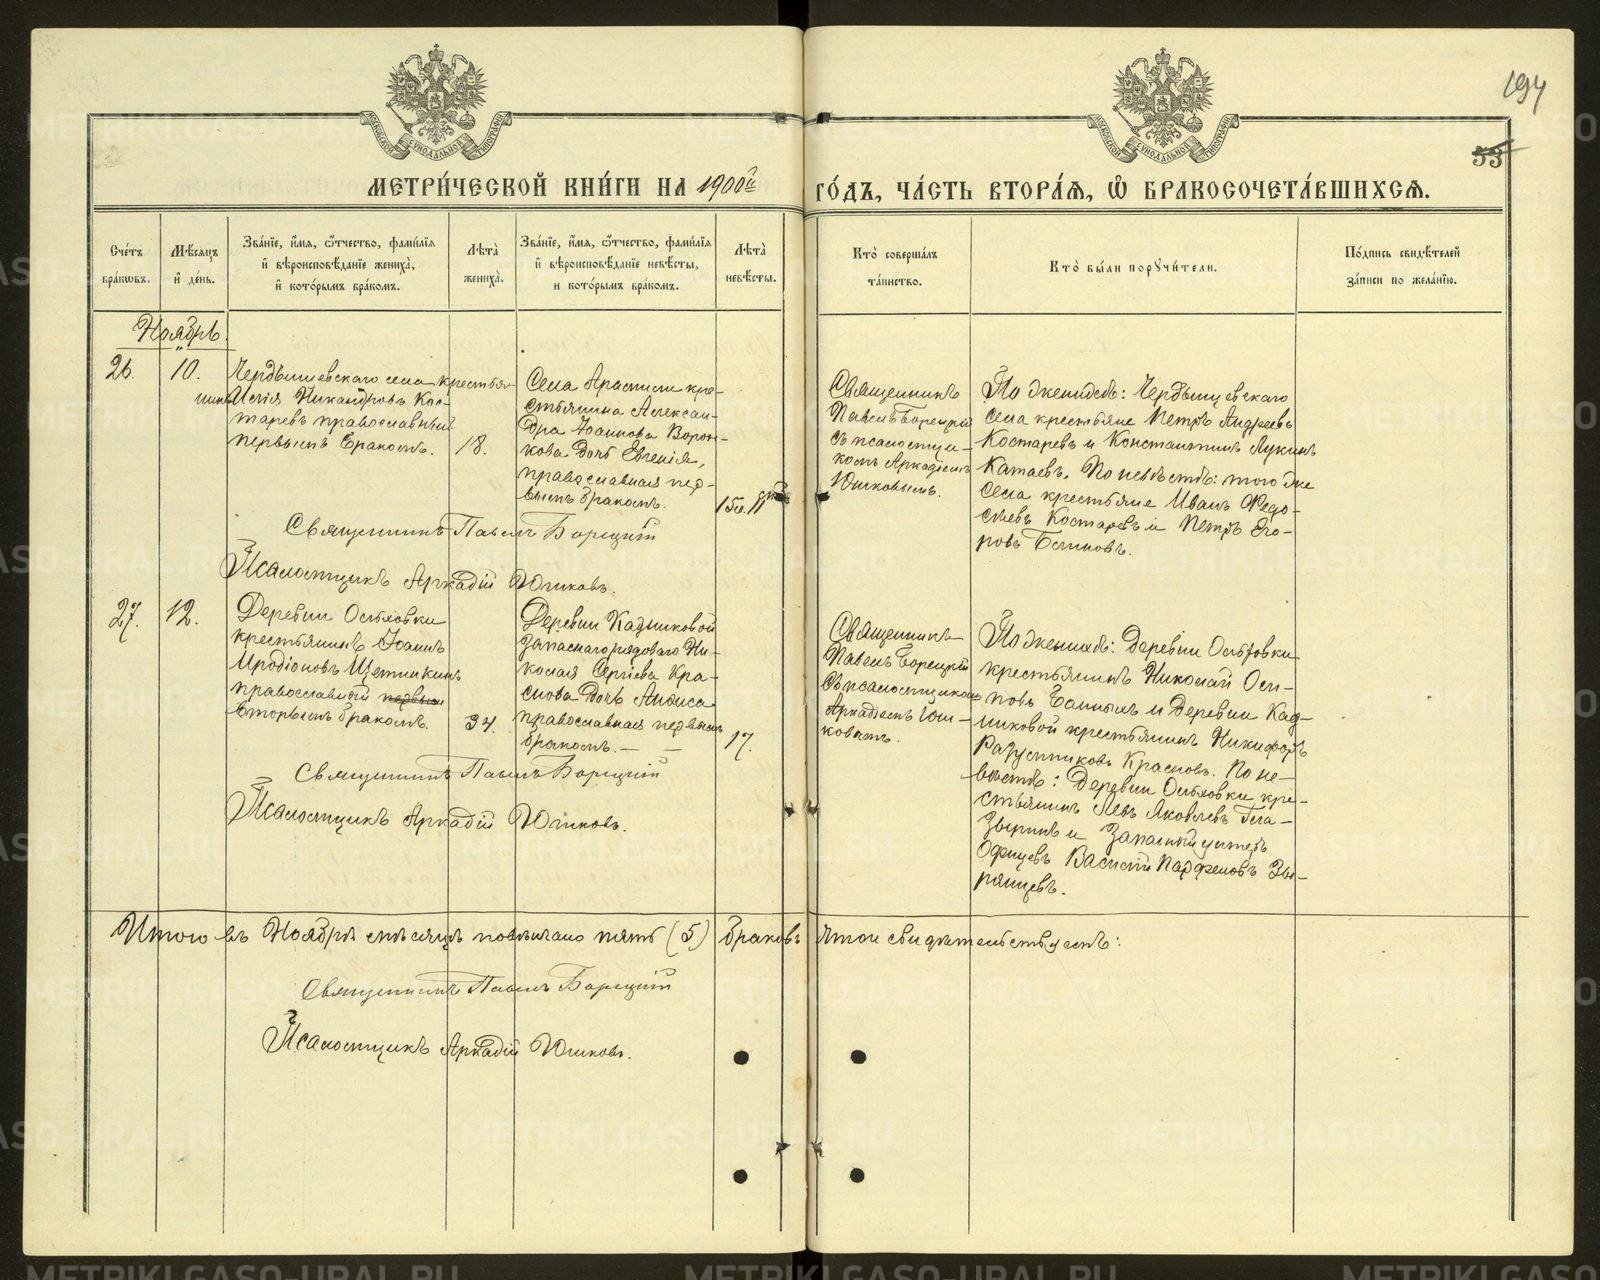 194
53
МЕТРИ́ЧЕСКОЙ КНИ́ГИ НА 1900й ГО́ДЪ, ЧА́СТЬ ВТОРА́Я, Ѿ БРАКОСОЧЕТА́ВШИХСЯ.
Сче́тъ бра́ковъ.
Мѣ́сяцъ и де́нь.
Зва́нїе, и́мя, ѻ́тчество, фами́лїя и вѣроисповѣ́данїе жениха̀, и кото́рымъ бра́комъ.
Лѣта̀ жениха̀.
Зва́нїе, и́мя, ѻ́тчество, фами́лїя и вѣроисповѣ́данїе невѣ́сты, и кото́рымъ бра́комъ.
Лѣта̀ невѣ́сты.
Кто̀ соверша́лъ та́инство.
Кто̀ бы́ли порꙋчи́тели.
По́дпись свидѣ́телей за́писи по жела́нїю.
Ноябрь.
26.
10.
Чердынцевскаго села крестья-
нинъ Илія Никандровъ Кос-
таревъ православный
первымъ бракомъ.
18.
Села Арамили кре-
стьянина Алексан-
дра Іоаннова Ворон-
кова дочь Евгенія,
православная пер-
вымъ бракомъ.
15 11
Священникъ
Павелъ Борецкій
съ псаломщи-
комъ Аркадіемъ
Юшковымъ.
По женихѣ:
села крестьяне Петръ Андреевъ
Костаревъ и Константинъ Лукинъ
Катаевъ. По невѣстѣ: того же
села крестьяне Иванъ Федо-
сѣевъ Костаревъ и Петръ Его-
ровъ
Священникъ Павелъ Борецкій
Псаломщикъ Аркадій Юшковъ.
27.
12.
Деревни
крестьянинъ Іоаннъ
Иродіоновъ Щетинкинъ
православной первым
вторымъ бракомъ.
34.
Деревни Кадниковой
запаснаго рядоваго Ни-
колая Сергіева Кра-
снова дочь Анфиса
православная первымъ
бракомъ. — —
17.
Священникъ
Павелъ Борецкій
съ псаломщикомъ
Аркадіемъ Юш-
ковымъ.
По женихѣ: Деревни
крестьянинъ Николай Оси-
повъ и деревни Кад-
никовой крестьянинъ Никифоръ
Разумниковъ Красновъ. По не-
вѣстѣ: Деревни кре-
стьянинъ Левъ Яковлевъ Гла-
зыринъ и Запасный унтеръ
Офицеръ Василій Парфеновъ Зы-
рянцевъ.
Священникъ Павелъ Борецкій
Псаломщикъ Аркадій Юшковъ.
Итого въ Ноябрѣ мѣсяцѣ повѣнчано пять (5) браковъ въ томъ свидѣтельствуемъ:
Священникъ Павелъ Борецкій
Псаломщикъ Аркадій Юшковъ.
METRIKI.GASO-URAL.RU